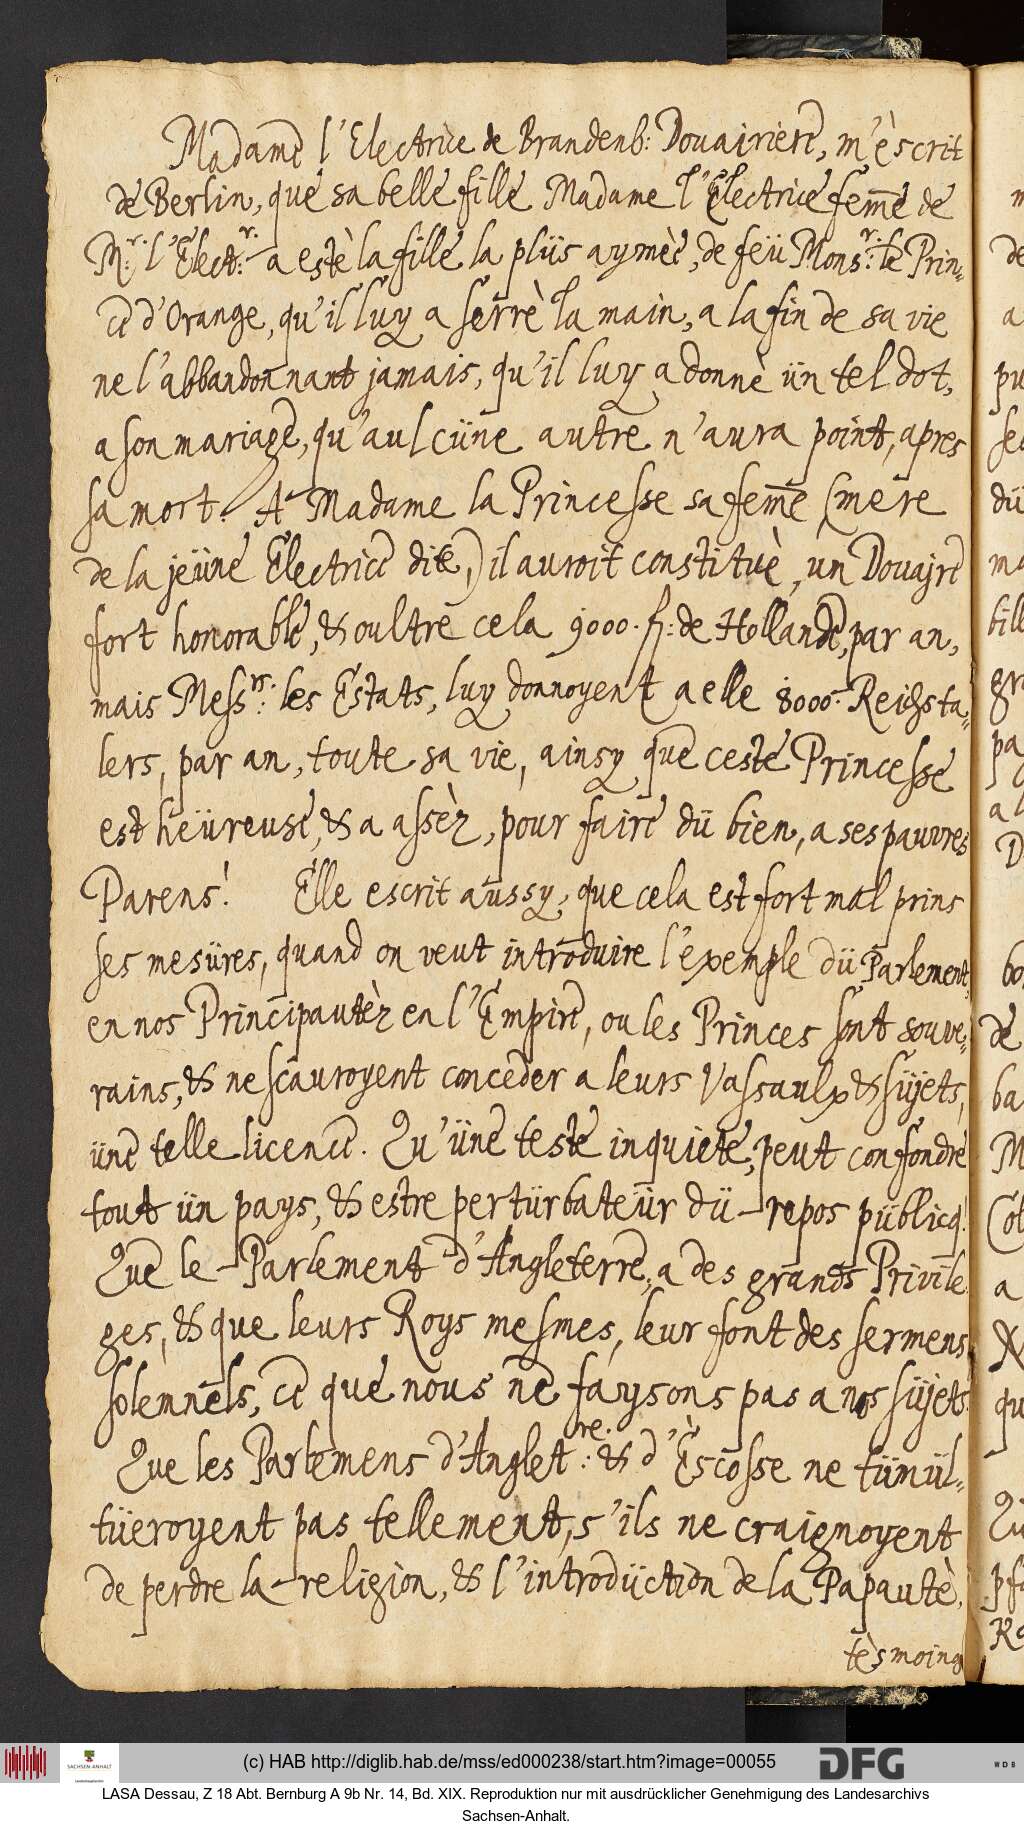 Madame l'Electrice de Brandenb: Douairiere, m'èscrit
de Berlin, que sa belle fille Madame l'Electrice fem̅e de
M.r: l'Elect.r: a estè la fille la plüs aymèe, de feü Mons.r: le Prin=
ce d'Orange, qu'il luy a serrè la main, a la fin de sa vie
ne l'abbandonnant jamais, qu'il luy a donnè ün tel dot,
a son mariage, qu'aulcüne autre n'aura point, apres
sa mort. A Madame la Princesse sa fem̅e (mere
de la jeüne Electrice dite,) il auroit constituè, un Douajre
fort honorable, & oultre cela 9000. fl: de Hollande, par an,
mais Mess.rs: les Estats, luy donnoyent a elle 8000. Reichsta=
lers, par an, toute sa vie, ainsy que ceste Princesse
est heüreuse, & a assèz, pour faire dü bien, a ses pauvres
Parens! Elle escrit aussy, que cela est fort mal prins
ses mesüres, quand on veut introduire l'exemple dü Parlement,
en nos Principautèz en l'Empire, ou les Princes sont souve=
rains, & ne scauroyent conceder a leurs Vassaulx & süjets,
üne telle licence. Qu'üne teste inquiete, peut confondre
tout ün pays, & estre pertürbateür dü repos püblicq!
Que le Parlement d'Angleterre, a des grands Privile
ges, & que leurs Roys mesmes, leur font des sermens
solemnels, ce que nous ne faysons pas a nos süjets.
Que les Parlemens d'Anglet.re: & d'Èscosse ne tümül=
tüeroyent pas tellement, s'ils ne craignoyent
de perdre la religion, & l'introdüction de la Papautè,
tèsmoing
(c) HAB http://diglib.hab.de/mss/ed000238/start.htm?image=00055
SACHSEN-ANHALT
DFG
WDB
LASA Dessau, Z 18 Abt. Bernburg A 9b Nr. 14, Bd. XIX. Reproduktion nur mit ausdrücklicher Genehmigung des Landesarchivs
Sachsen-Anhalt.